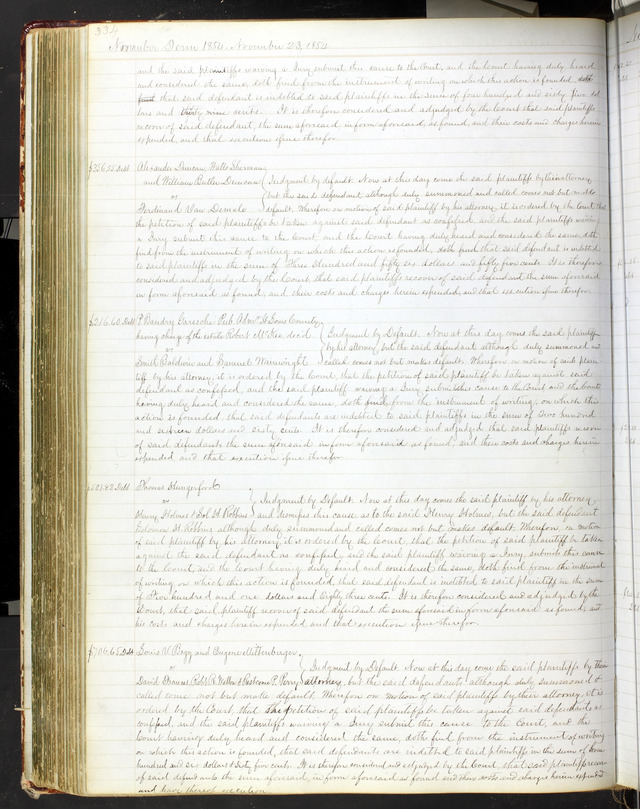 334
November Term 1854. November 23, 1854
and the said plaintiffs waiving a Jury submit this cause to the Court, and the Court having duly heard
and considered the same, doth find from the instrument of writing on which this action is founded
that said defendant is indebted to said plaintiffs in the sum of four hundred and sixty five dol
lars and thirty nine cents. It is therefore considered and adjudged by the Court that said plaintiffs
recover of said defendant, the sum aforesaid, in form aforesaid, as found, and their costs and charges herein
expended, and that execution issue therefor
$356.55 Debt Alexander Duncan, Watts Sherman
and William Butler Duncan Judgment by default. Now at this day come the said plaintiffs by their attorney
vs but the said defendant although duly summoned and called comes not but makes
Ferdinand Van default. Wherefore on motion of said plaintiff by his attorney, it is ordered by the Court that
the petition of said plaintiffs be taken against said defendant as confessed and the said plaintiffs waiving
a Jury submit this cause to the Court and the Court having duly heard and considered the same, doth
find from the instrument of writing on which this action is founded, doth find that said defendant is indebted
to said plaintiffs in the sum of Three Hundred and fifty six dollars and fifty five cents. It is therefore
considered and adjudged by the Court that said plaintiffs recover of said defendant the sum aforesaid
in form aforesaid as found, and their costs and charges herein expended, and that execution issue therefor
$216.60 Debt P. Baudry Garesche Pub. Admr. St Louis County
having charge of the estate Robert McKee decd Judgment by Default. Now at this day comes the said plaintiff
vs by his attorney but the said defendants although duly summoned and
Smith Baldwin and Samuel Wainwright called comes not but makes default. Wherefore on motion of said plain
tiff by his attorney, it is ordered by the Court, that the petition of said plaintiff be taken against said
defendant as confessed, and the said plaintiff waiving a Jury submits this cause to the Court and the Court
having duly heard and considered the same, doth find from the instrument of writing, on which this
action is founded, that said defendants are indebted to said plaintiffs in the sum of Two hundred
and sixteen dollars and sixty cents. It is therefore considered and adjudged that said plaintiff recover
of said defendants the sum aforesaid in form aforesaid as found, and their costs and charges herein
expended and that execution issue therefor
Debt Thomas Hungerford
vs Judgment by Default. Now at this day comes the said plaintiff by his attorney
Henry Holmes & Sol. H. Robbins and dismisses his cause as to the said Henry Holmes, but the said defendant
Solomon H. Robbins although duly summoned and called comes not but makes default. Wherefore on motion
of said plaintiff by his attorney it is ordered by the Court, that the petition of said plaintiff be taken
against the said defendant as confessed, and the said plaintiff waiving a Jury, submits this cause
to the Court, and the Court having duly heard and considered the same, doth find from the instrument
of writing on which this action is founded that said defendant is indebted to said plaintiff in the sum
of Five hundred and one dollars and Eighty three cents. It is therefore considered and adjudged by the
Court, that said plaintiff recover of said defendant the sum aforesaid in form aforesaid as found, and
his costs and charges herein expended and that execution issue therefor
$706.65 Debt Louis V. Bogy and Eugene Miltenberger
vs Judgment by Default. Now at this day come the said plaintiffs by their
David Robt. R. & P. Perry attorney, but the said defendants although duly summoned &
called come not but make default. Wherefore on motion of said plaintiffs by their attorney, it is
ordered by the Court, that the petition of said plaintiffs be taken against said defendants as
confessed, and the said plaintiffs waiving a Jury submit this cause to the Court, and the
Court having duly heard and considered the same, doth find from the instrument of writing
on which this action is founded, that said defendants are indebted to said plaintiffs in the sum of
hundred and six dollars & sixty five cents. It is therefore considered and adjudged by the Court, that said plaintiffs recover
of said defendants the sum aforesaid, in form aforesaid as found and their costs and charges herein expended
and have thereof execution